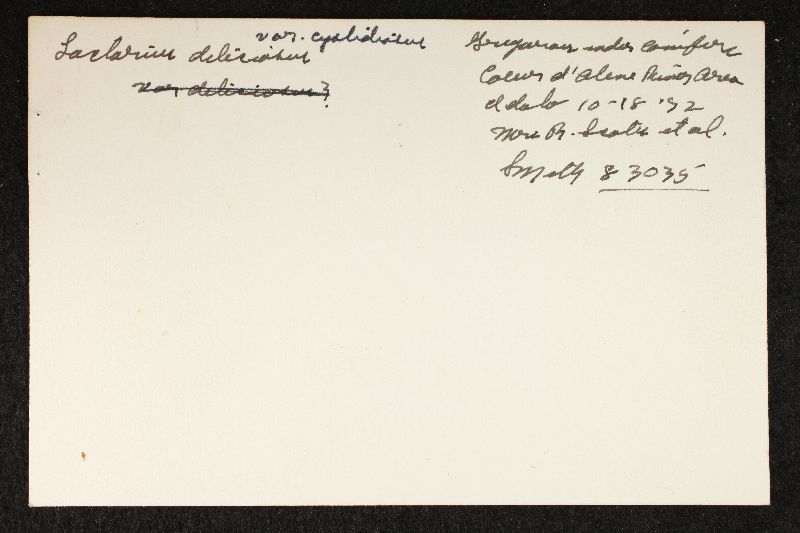 Lactarius deliciosus
var. cystidiosus
var deliciosus?
Gregarious under conifers
Coeur d'Alene River area
Idaho 10-18 '72
Mrs R. Scates et al.
Smith 83035